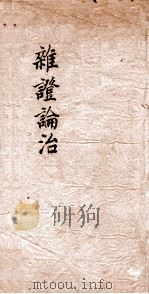 雜證論治
mtoou.info